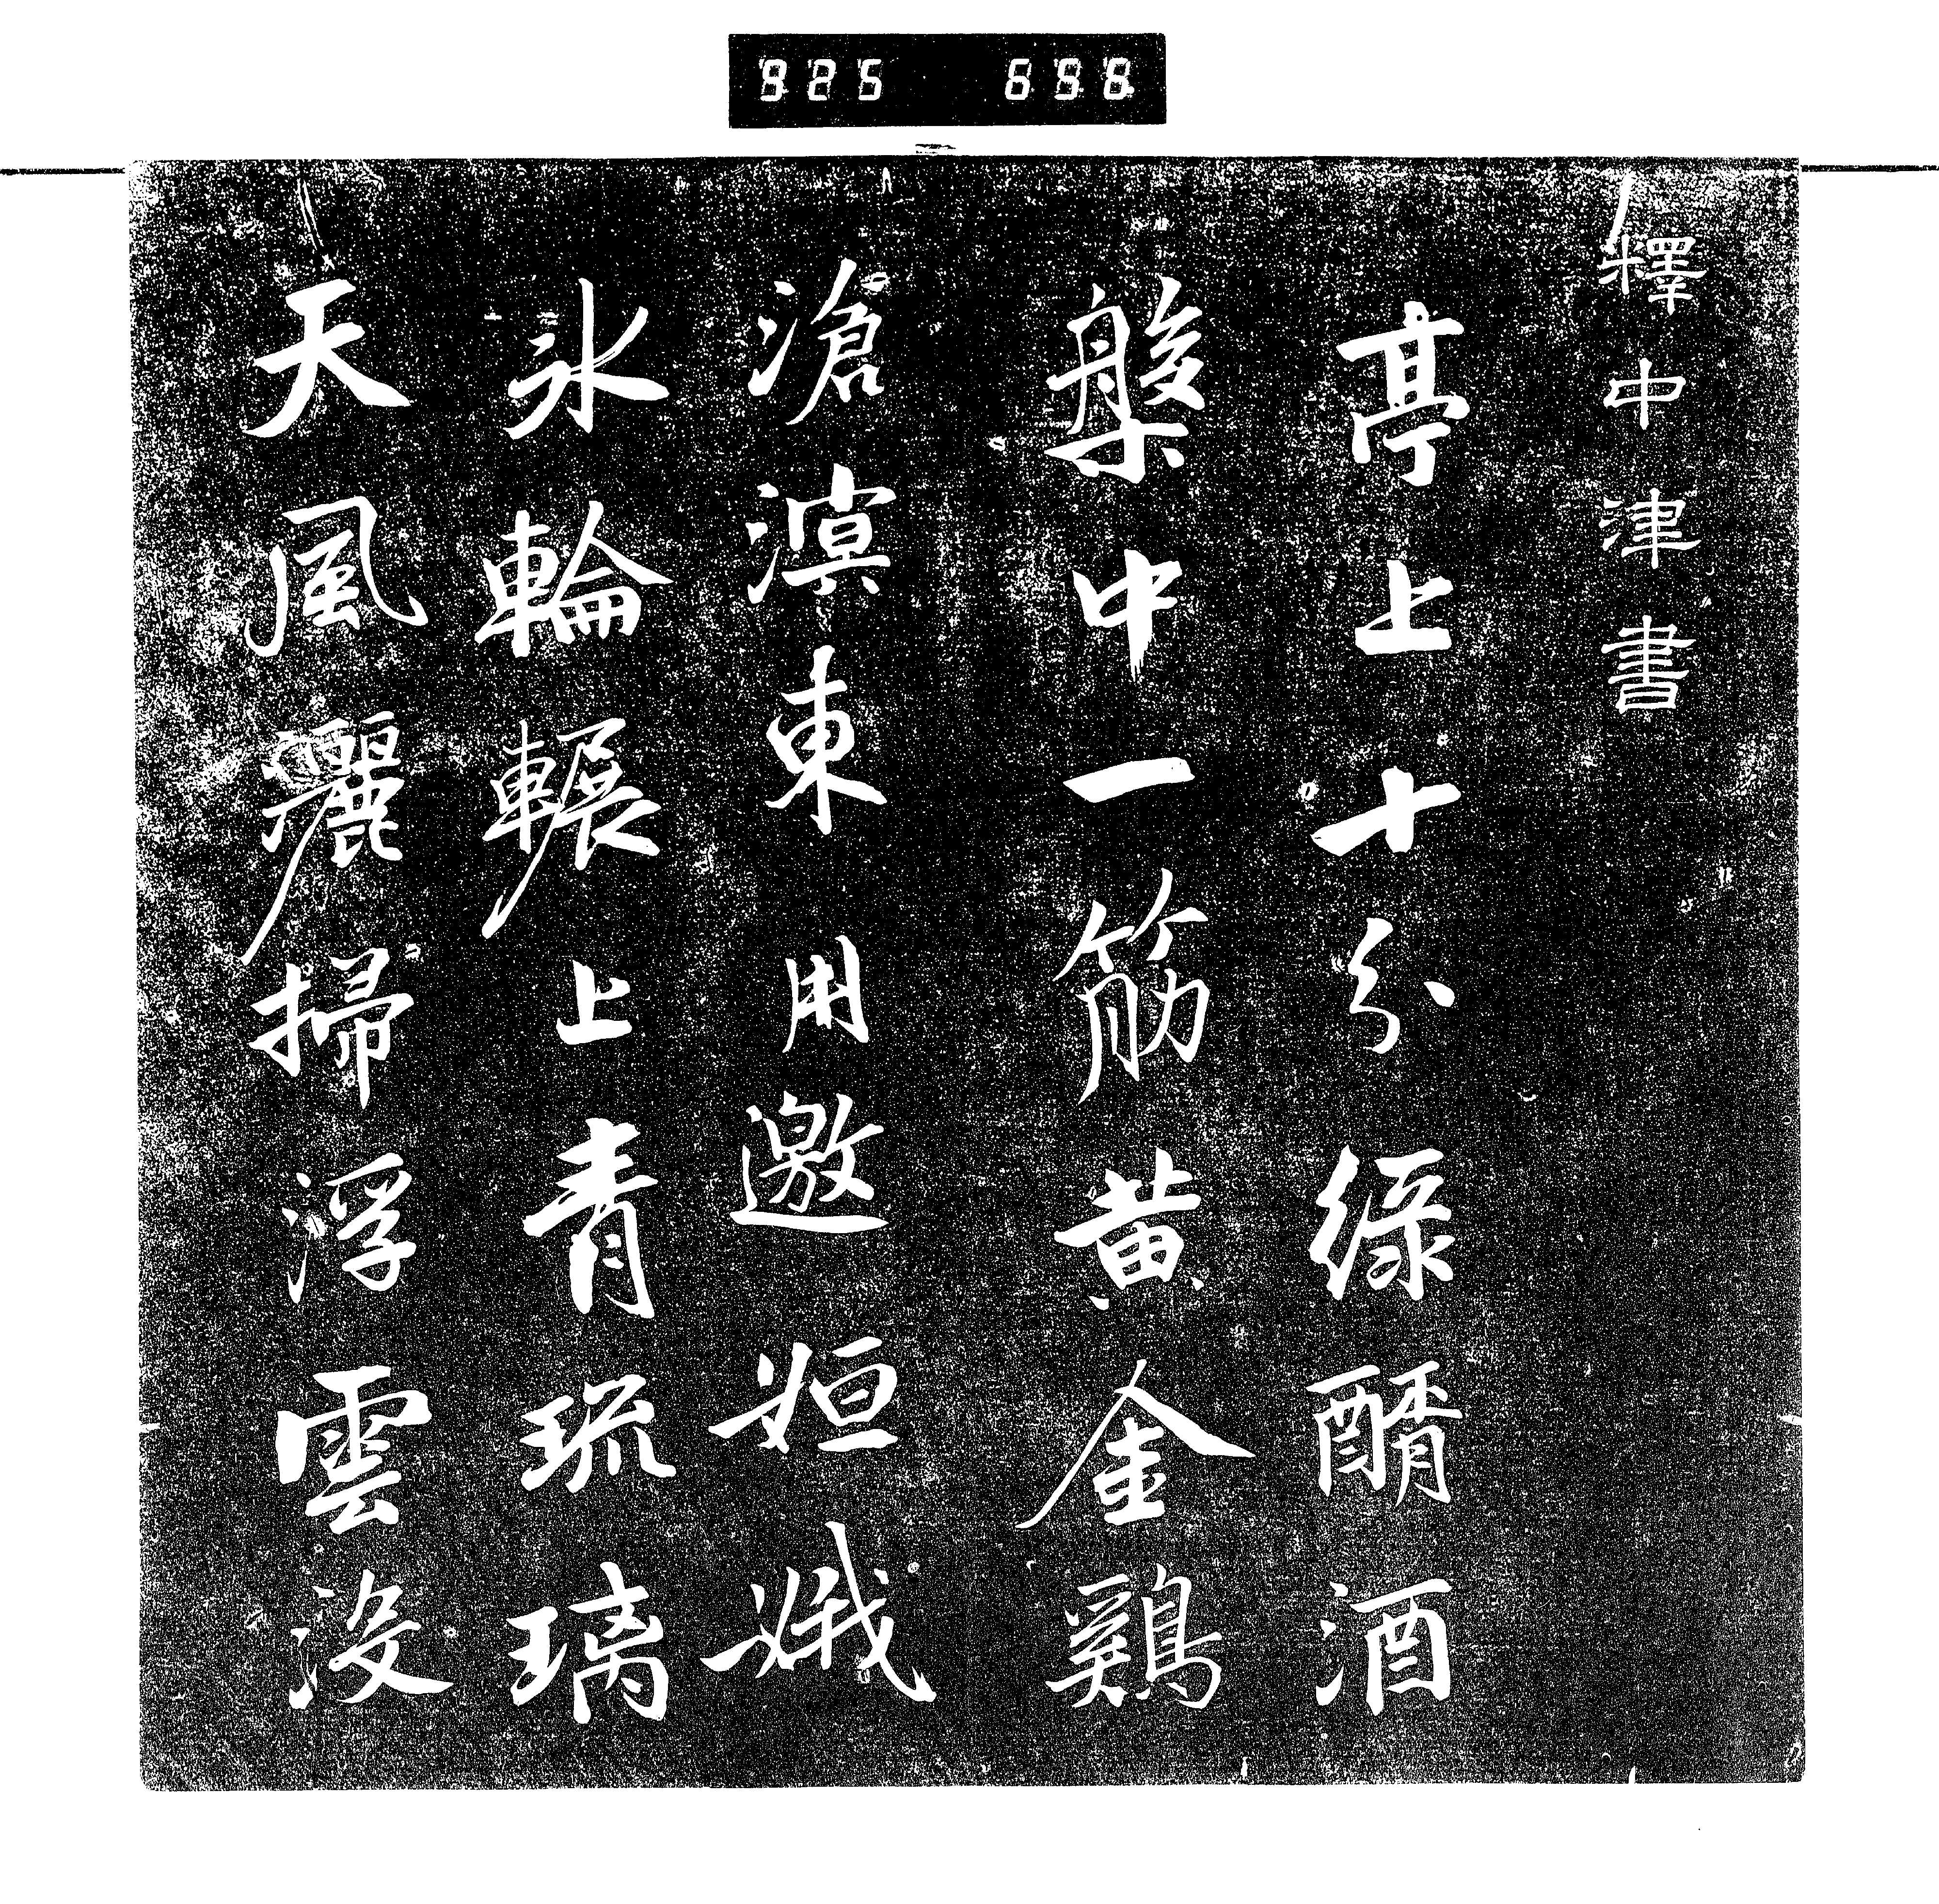 925 698
釋中津書
亭上十分綠醑酒
槃中一筋黃金鷄
滄溟東用邀姮娥
氷輪輾上青琉璃
天風灑掃浮雲沒